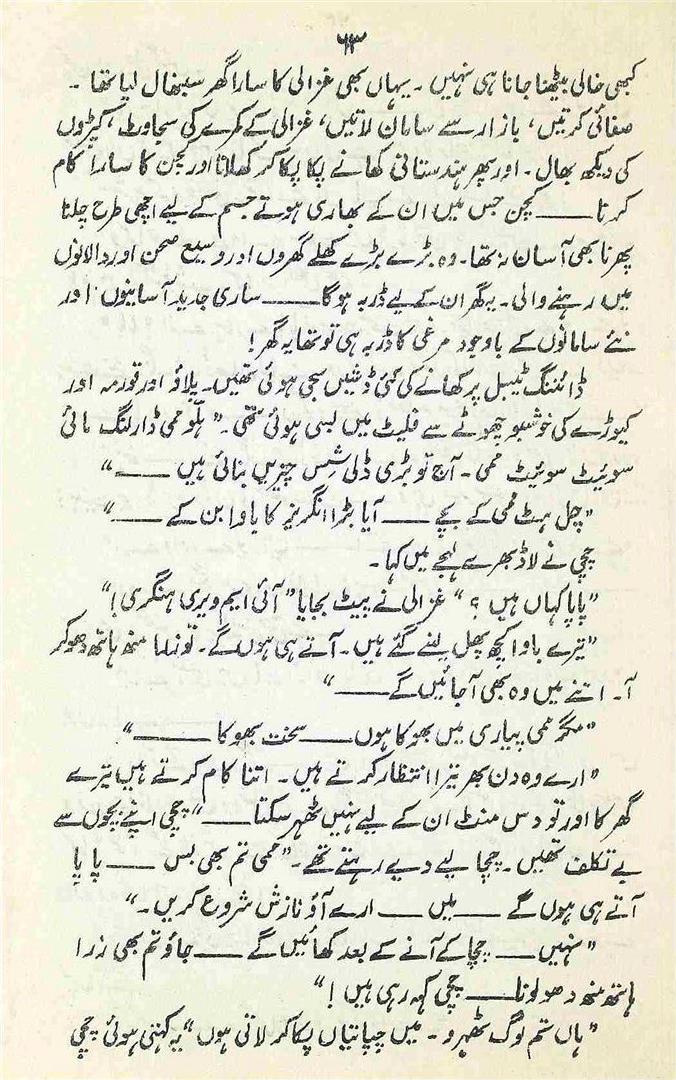 ۶۳
کبھی خالی بیٹھنا جانا ہی نہیں ۔ یہاں بھی غزالی کا سارا گھر سبنھال لیا تھا ۔
صفائی کرتیں، بازار سے سامان لاتیں، غزالی کے کمرے کی سجاوٹ، کپڑوں
کی دیکھ بھال ۔ اور پھر ہندستانی کھانے پکا پکا کر کھلانا اور کچن کا سارا کام
کرنا ـــــ کچن جس میں ان کے بھاری ہوتے جسم کے لیے اچھی طرح چلنا
پھرنا بھی آسان نہ تھا۔ وہ بڑے بڑے کھلے گھروں اور وسیع صحن اور دالانوں
میں رہنے والی ۔ یہ گھر ان کے لیے ڈربہ ہو گا ـــــ ساری جدید آسایٔنوں اور
نئے سامانوں کے باوجود مرغی کا ڈربہ ہی تو تھا یہ گھر!
ڈائننگ ٹیبل پر کھانے کی کئی ڈشیں سجی ہوئی تھیں۔ پلاؤ اور قورمہ اور
کیوڑے کی خوشبو چھوٹے سے فلیٹ میں بسی ہوئی تھی ۔" ہلّو ممی ڈارلنگ مائی
سوئیٹ سوئیٹ ممی ۔ آج تو بڑی ڈلی شِس چیزیں بنائی ہیں ـــــ "
"چل ہٹ ممی کے بچے ـــــ آیا بڑا انگریز کا باوا بن کے ـــــ "
چچی نے لاڈ بھرے لہجے میں کہا ۔
"پاپا کہاں ہیں ؟ " غزالی نے پیٹ بجایا "آئی ایم ویری ہنگری!"
"تیرے باوا کچھ پھل لینے گئے ہیں ۔ آتے ہی ہوں گے ۔ تو ذرا منھ ہاتھ دھو کر
آ۔ اتنے میں وہ بھی آ جائیں گے ـــــ "
"مگر ممی پیاری میں بھوکا ہوں ـــــ سخت بھوکا ـــــ "
"ارے وہ دن بھر تیرا انتظار کرتے ہیں ۔ اتنا کام کرتے ہیں تیرے
گھر کا اور تو دس منٹ ان کے لیے نہیں ٹھہر سکتا ـــــ " چچی اپنے بچوں سے
بے تکلف تھیں ۔ چچا لیے دیے رہتے تھے ۔ "ممی تم بھی بس ـــــ پاپا
آتے ہی ہوں گے ـــــ میں ـــــ ارے آؤ نازش شروع کریں ۔"
"نہیں ـــــ چچا کے آنے کے بعد کھائیں گے ـــــ جاؤ تم بھی ذرا
ہاتھ منھ دھو لو نا ـــــ چچی کہہ رہی ہیں !"
"ہاں تم لوگ ٹھہرو ۔ میں چپاتیاں پکا کر لاتی ہوں" یہ کہتی ہوئی چچی